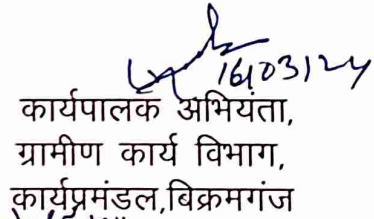 16/03/24
कार्यपालक अभियंता,
ग्रामीण कार्य विभाग,
कार्यप्रमंडल,बिक्रमगंज